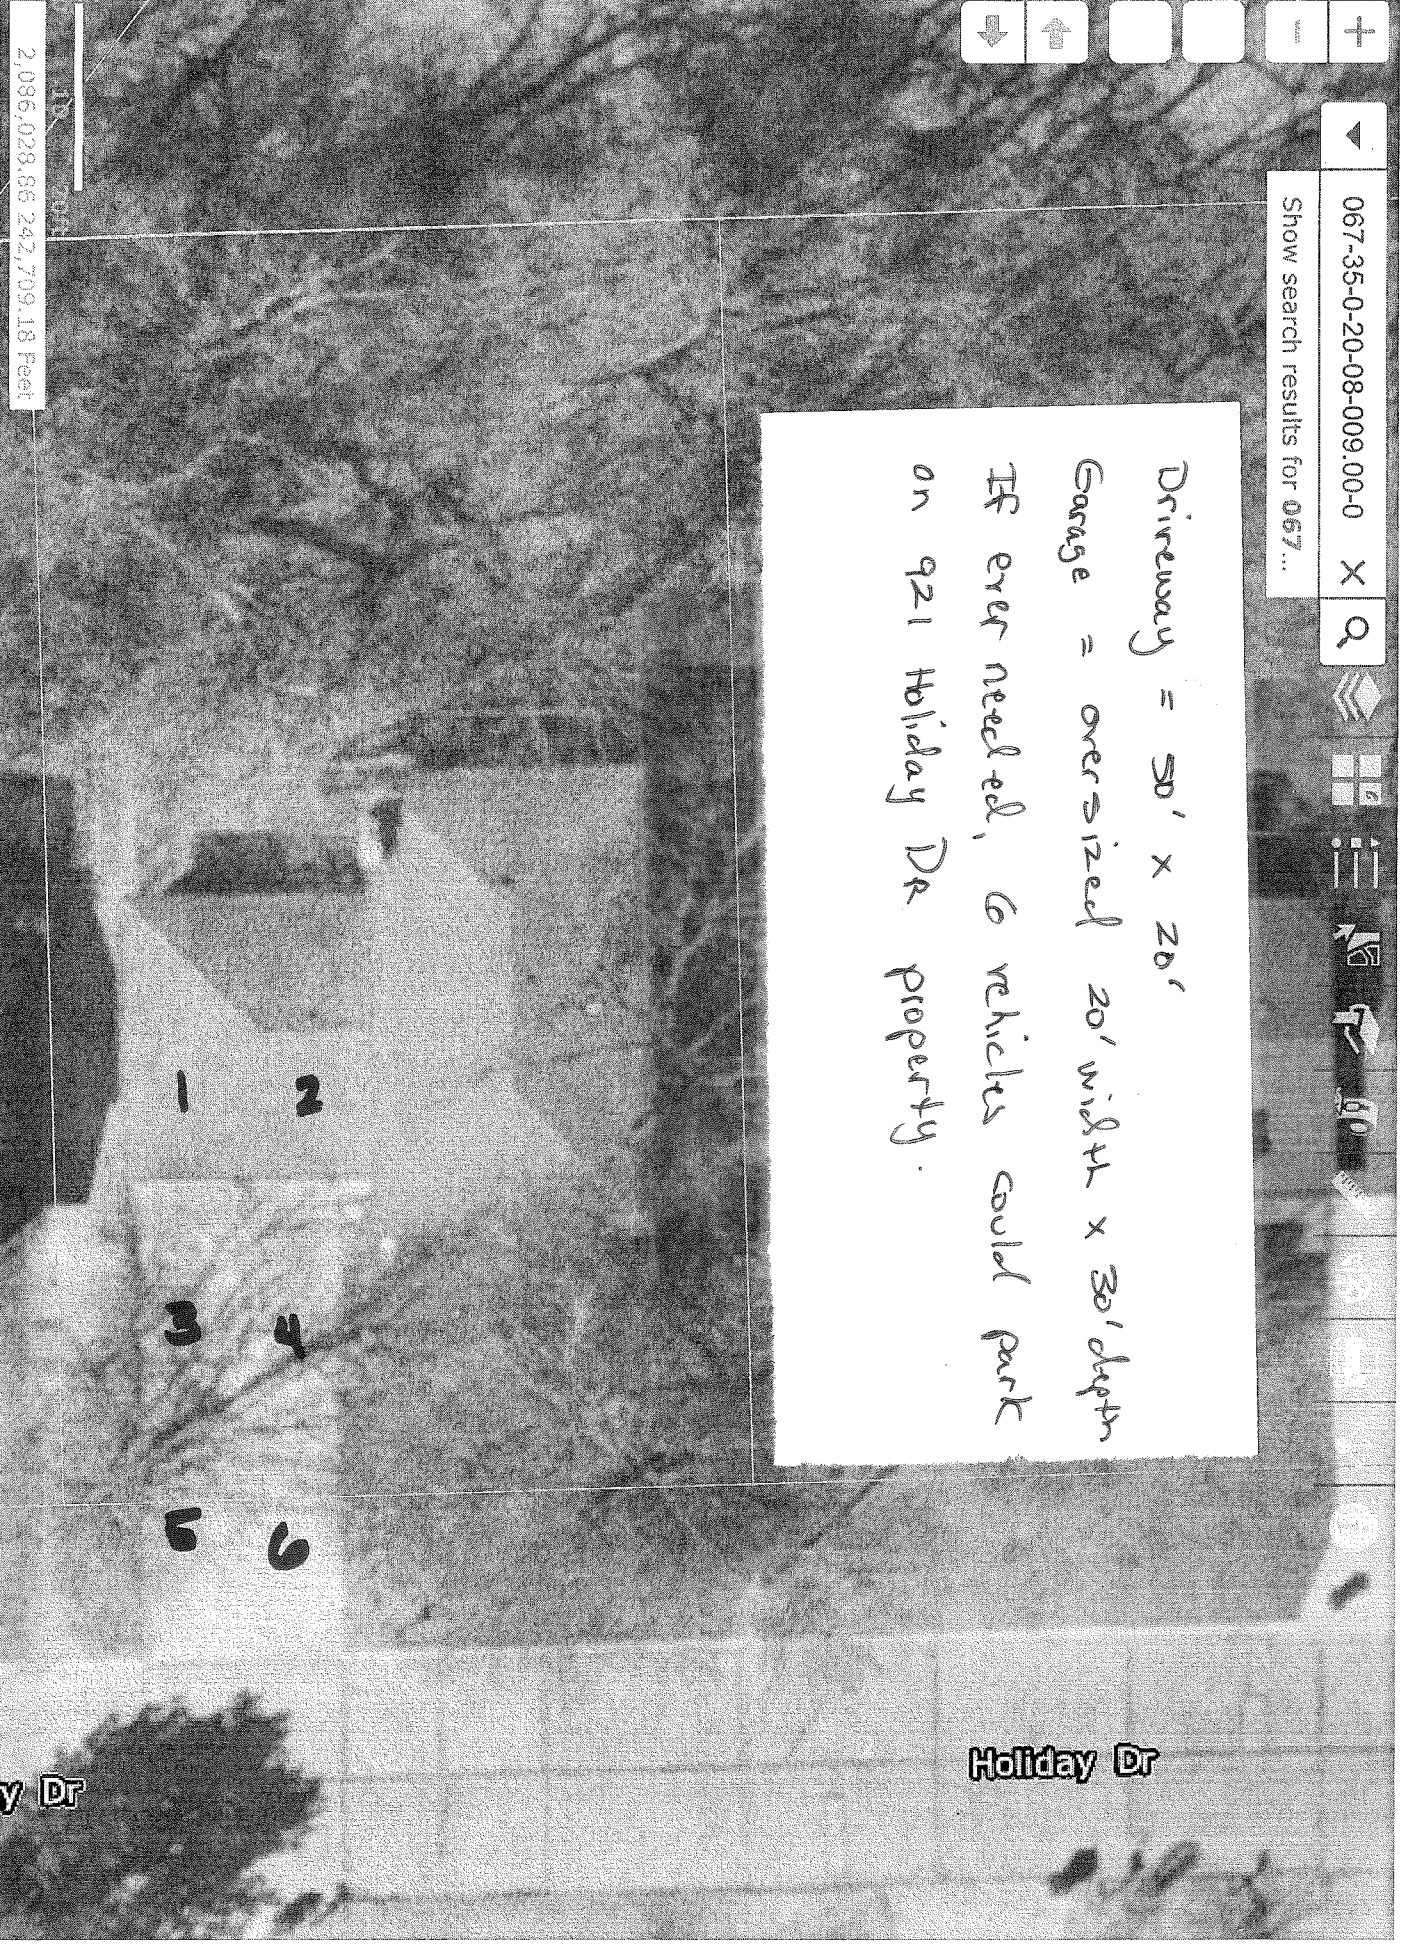 067-35-0-20-08-009.00-0
Show search results for 067...
Driveway = 50' x 20'
Garage = oversized 20' width x 30' depth
If ever needed, 6 vehicles could park
on 921 Holiday DR property.
2
1
4
3
6
5
Holiday Dr
y Dr
10 20ft
2,086,028.86 242,709.18 Feet